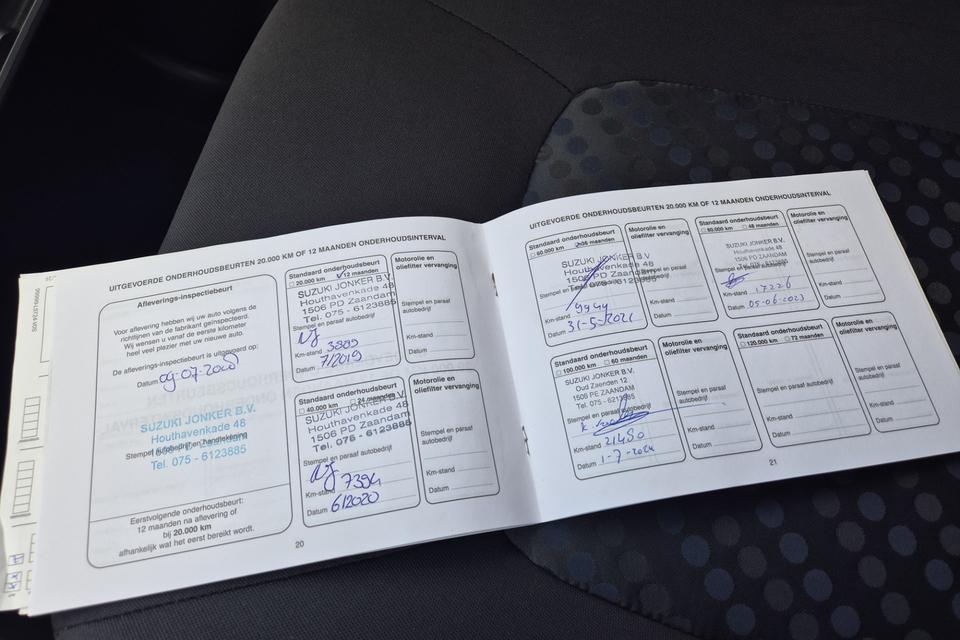 UITGEVOERDE ONDERHOUDSBEURTEN 20.000 KM OF 12 MAANDEN ONDERHOUDSINTERVAL
Afleverings-inspectiebeurt
Voor aflevering hebben wij uw auto volgens de
richtlijnen van de fabrikant geïnspecteerd.
Wij wensen u vanaf de eerste kilometer
heel veel plezier met uw nieuwe auto.
De afleverings-inspectiebeurt is uitgevoerd op:
Datum 09-07-20
SUZUKI JONKER B.V.
Houthavenkade 48
Stempel autobedrijf en handtekening
1506 PD Zaandam
Tel. 075 - 6123885
Eerstvolgende onderhoudsbeurt:
12 maanden na aflevering of
bij 20.000 km
afhankelijk wat het eerst bereikt wordt.
Standaard onderhoudsbeurt
20.000 km 12 maanden
SUZUKI JONKER B.V.
Houthavenkade 48
1506 PD Zaandam
Tel. 075 - 6123885
Stempel en paraaf autobedrijf
Km-stand 3885
Datum 7/2019
Motorolie en
oliefilter vervanging
Stempel en paraaf
autobedrijf
Km-stand
Datum
Standaard onderhoudsbeurt
40.000 km 24 maanden
SUZUKI JONKER B.V.
Houthavenkade 48
1506 PD Zaandam
Tel. 075 - 6123885
Stempel en paraaf autobedrijf
Km-stand 7394
Datum 6/2020
Motorolie en
oliefilter vervanging
Stempel en paraaf
autobedrijf
Km-stand
Datum
20
UITGEVOERDE ONDERHOUDSBEURTEN 20.000 KM OF 12 MAANDEN ONDERHOUDSINTERVAL
Standaard onderhoudsbeurt
60.000 km 36 maanden
SUZUKI JONKER B.V.
Houthavenkade 48
1506 PD Zaandam
Tel. 075 - 6123885
Stempel en paraaf autobedrijf
Km-stand 9944
Datum 31-5-2021
Motorolie en
oliefilter vervanging
Stempel en paraaf
autobedrijf
Km-stand
Datum
Standaard onderhoudsbeurt
48 maanden
SUZUKI JONKER B.V.
Houthavenkade 48
1506 PD Zaandam
Stempel en paraaf autobedrijf
Km-stand 17226
Datum 05-06-2023
Motorolie en
oliefilter vervanging
Stempel en paraaf
autobedrijf
Km-stand
Datum
Standaard onderhoudsbeurt
100.000 km 60 maanden
SUZUKI JONKER B.V.
Oud Zaenden 12
1506 PE ZAANDAM
Tel. 075 - 6123885
Stempel en paraaf autobedrijf
Km-stand 21480
Datum 1-7-2024
Motorolie en
oliefilter vervanging
Stempel en paraaf
autobedrijf
Km-stand
Datum
Standaard onderhoudsbeurt
120.000 km 72 maanden
Stempel en paraaf autobedrijf
Km-stand
Datum
Motorolie en
oliefilter vervanging
Stempel en paraaf
autobedrijf
Km-stand
Datum
21